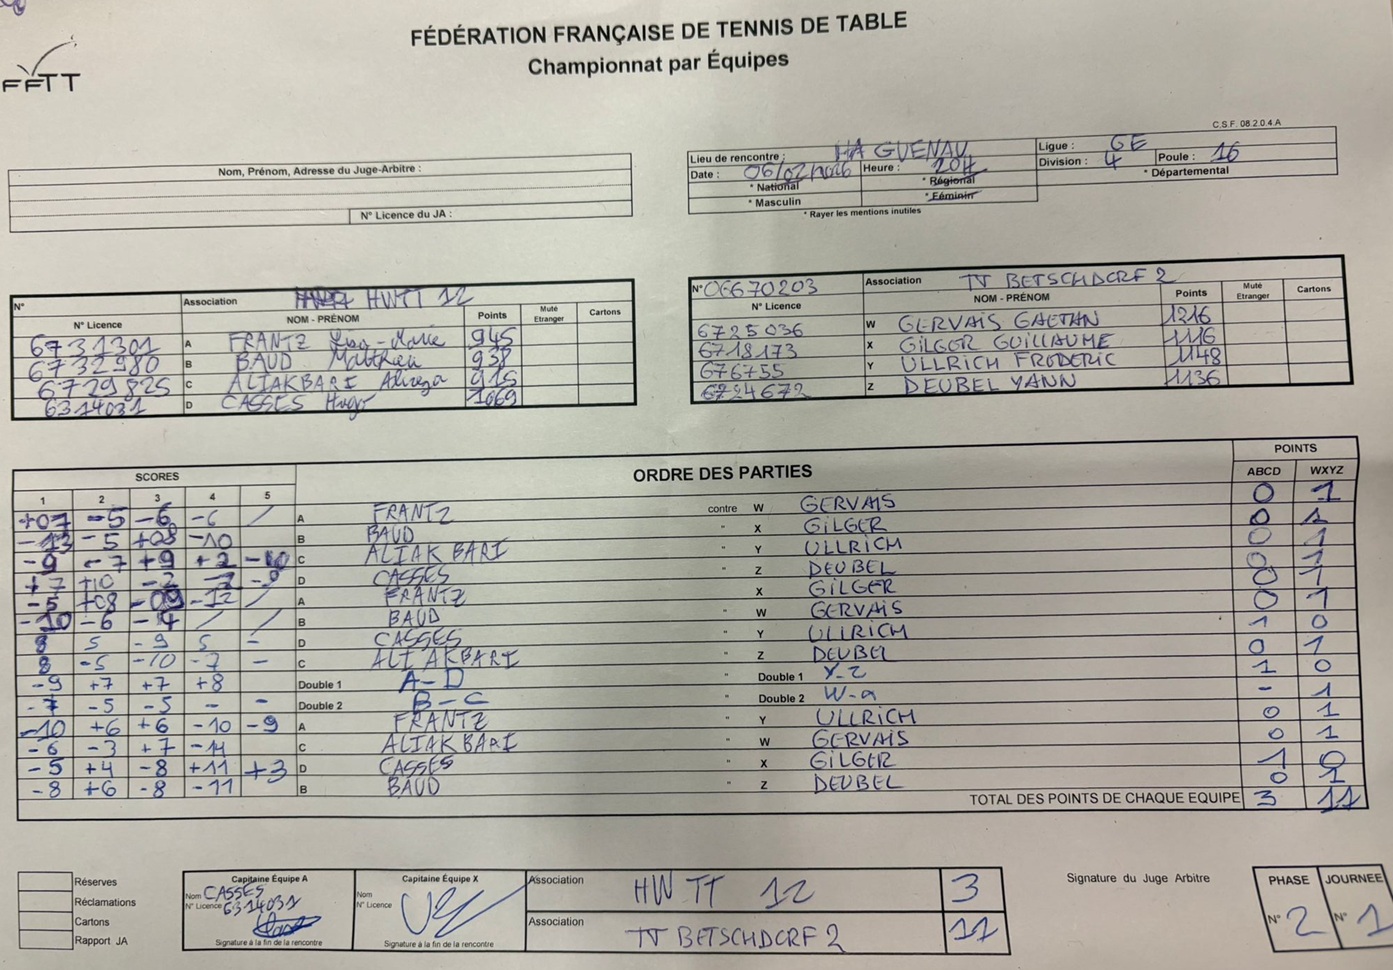 FÉDÉRATION FRANÇAISE DE TENNIS DE TABLE
Championnat par Équipes
FFTT
C.S.F. 08.2.0.4.A
Nom, Prénom, Adresse du Juge-Arbitre :
N° Licence du JA :
Lieu de rencontre : HAGUENAU Ligue : GE
Date : 06/02/2026 Heure : 20H Division : 4 Poule : 16
* National * Régional * Départemental
* Masculin * Féminin
* Rayer les mentions inutiles
N° Association HWTT 12
N° Licence NOM - PRÉNOM Points Muté Etranger Cartons
6731301 A FRANTZ Lisa-Marie 945
6732980 B BAUD Matthieu 938
6729825 C ALIAKBARI Alireza 915
6314031 D CASSES Hugo 1069
N° 06670203 Association TT BETSCHDORF 2
N° Licence NOM - PRÉNOM Points Muté Etranger Cartons
6725036 W GERVAIS GAETAN 1216
6718173 X GILGER GUILLAUME 1116
676755 Y ULLRICH FREDERIC 1148
6724672 Z DEUBEL YANN 1136
SCORES ORDRE DES PARTIES POINTS
1 2 3 4 5 ABCD WXYZ
+07 -5 -6 -6 / A FRANTZ contre W GERVAIS 0 1
-13 -5 +08 -10 B BAUD " X GILGER 0 1
-9 -7 +9 +2 -10 C ALIAKBARI " Y ULLRICH 0 1
+7 +10 -2 -7 -9 D CASSES " Z DEUBEL 0 1
-5 +08 -09 -12 / A FRANTZ " X GILGER 0 1
-10 -6 -4 / / B BAUD " W GERVAIS 0 1
8 5 -9 5 - D CASSES " Y ULLRICH 1 0
8 -5 -10 -7 - C ALIAKBARI " Z DEUBEL 0 1
-9 +7 +7 +8 Double 1 A-D " Double 1 Y-Z 1 0
-7 -5 -5 - - Double 2 B-C " Double 2 W-a - 1
-10 +6 +6 -10 -9 A FRANTZ " Y ULLRICH 0 1
-6 -3 +7 -14 C ALIAKBARI " W GERVAIS 0 1
-5 +4 -8 +11 +3 D CASSES " X GILGER 1 0
-8 +6 -8 -11 B BAUD " Z DEUBEL 0 1
TOTAL DES POINTS DE CHAQUE EQUIPE 3 11
Réserves
Réclamations
Cartons
Rapport JA
Capitaine Équipe A
Nom CASSES
N° Licence 6314031
Signature à la fin de la rencontre
Capitaine Équipe X
Nom
N° Licence
Signature à la fin de la rencontre
Association HW TT 12 3
Association TT BETSCHDORF 2 11
Signature du Juge Arbitre
PHASE JOURNEE
N° 2 N° 1